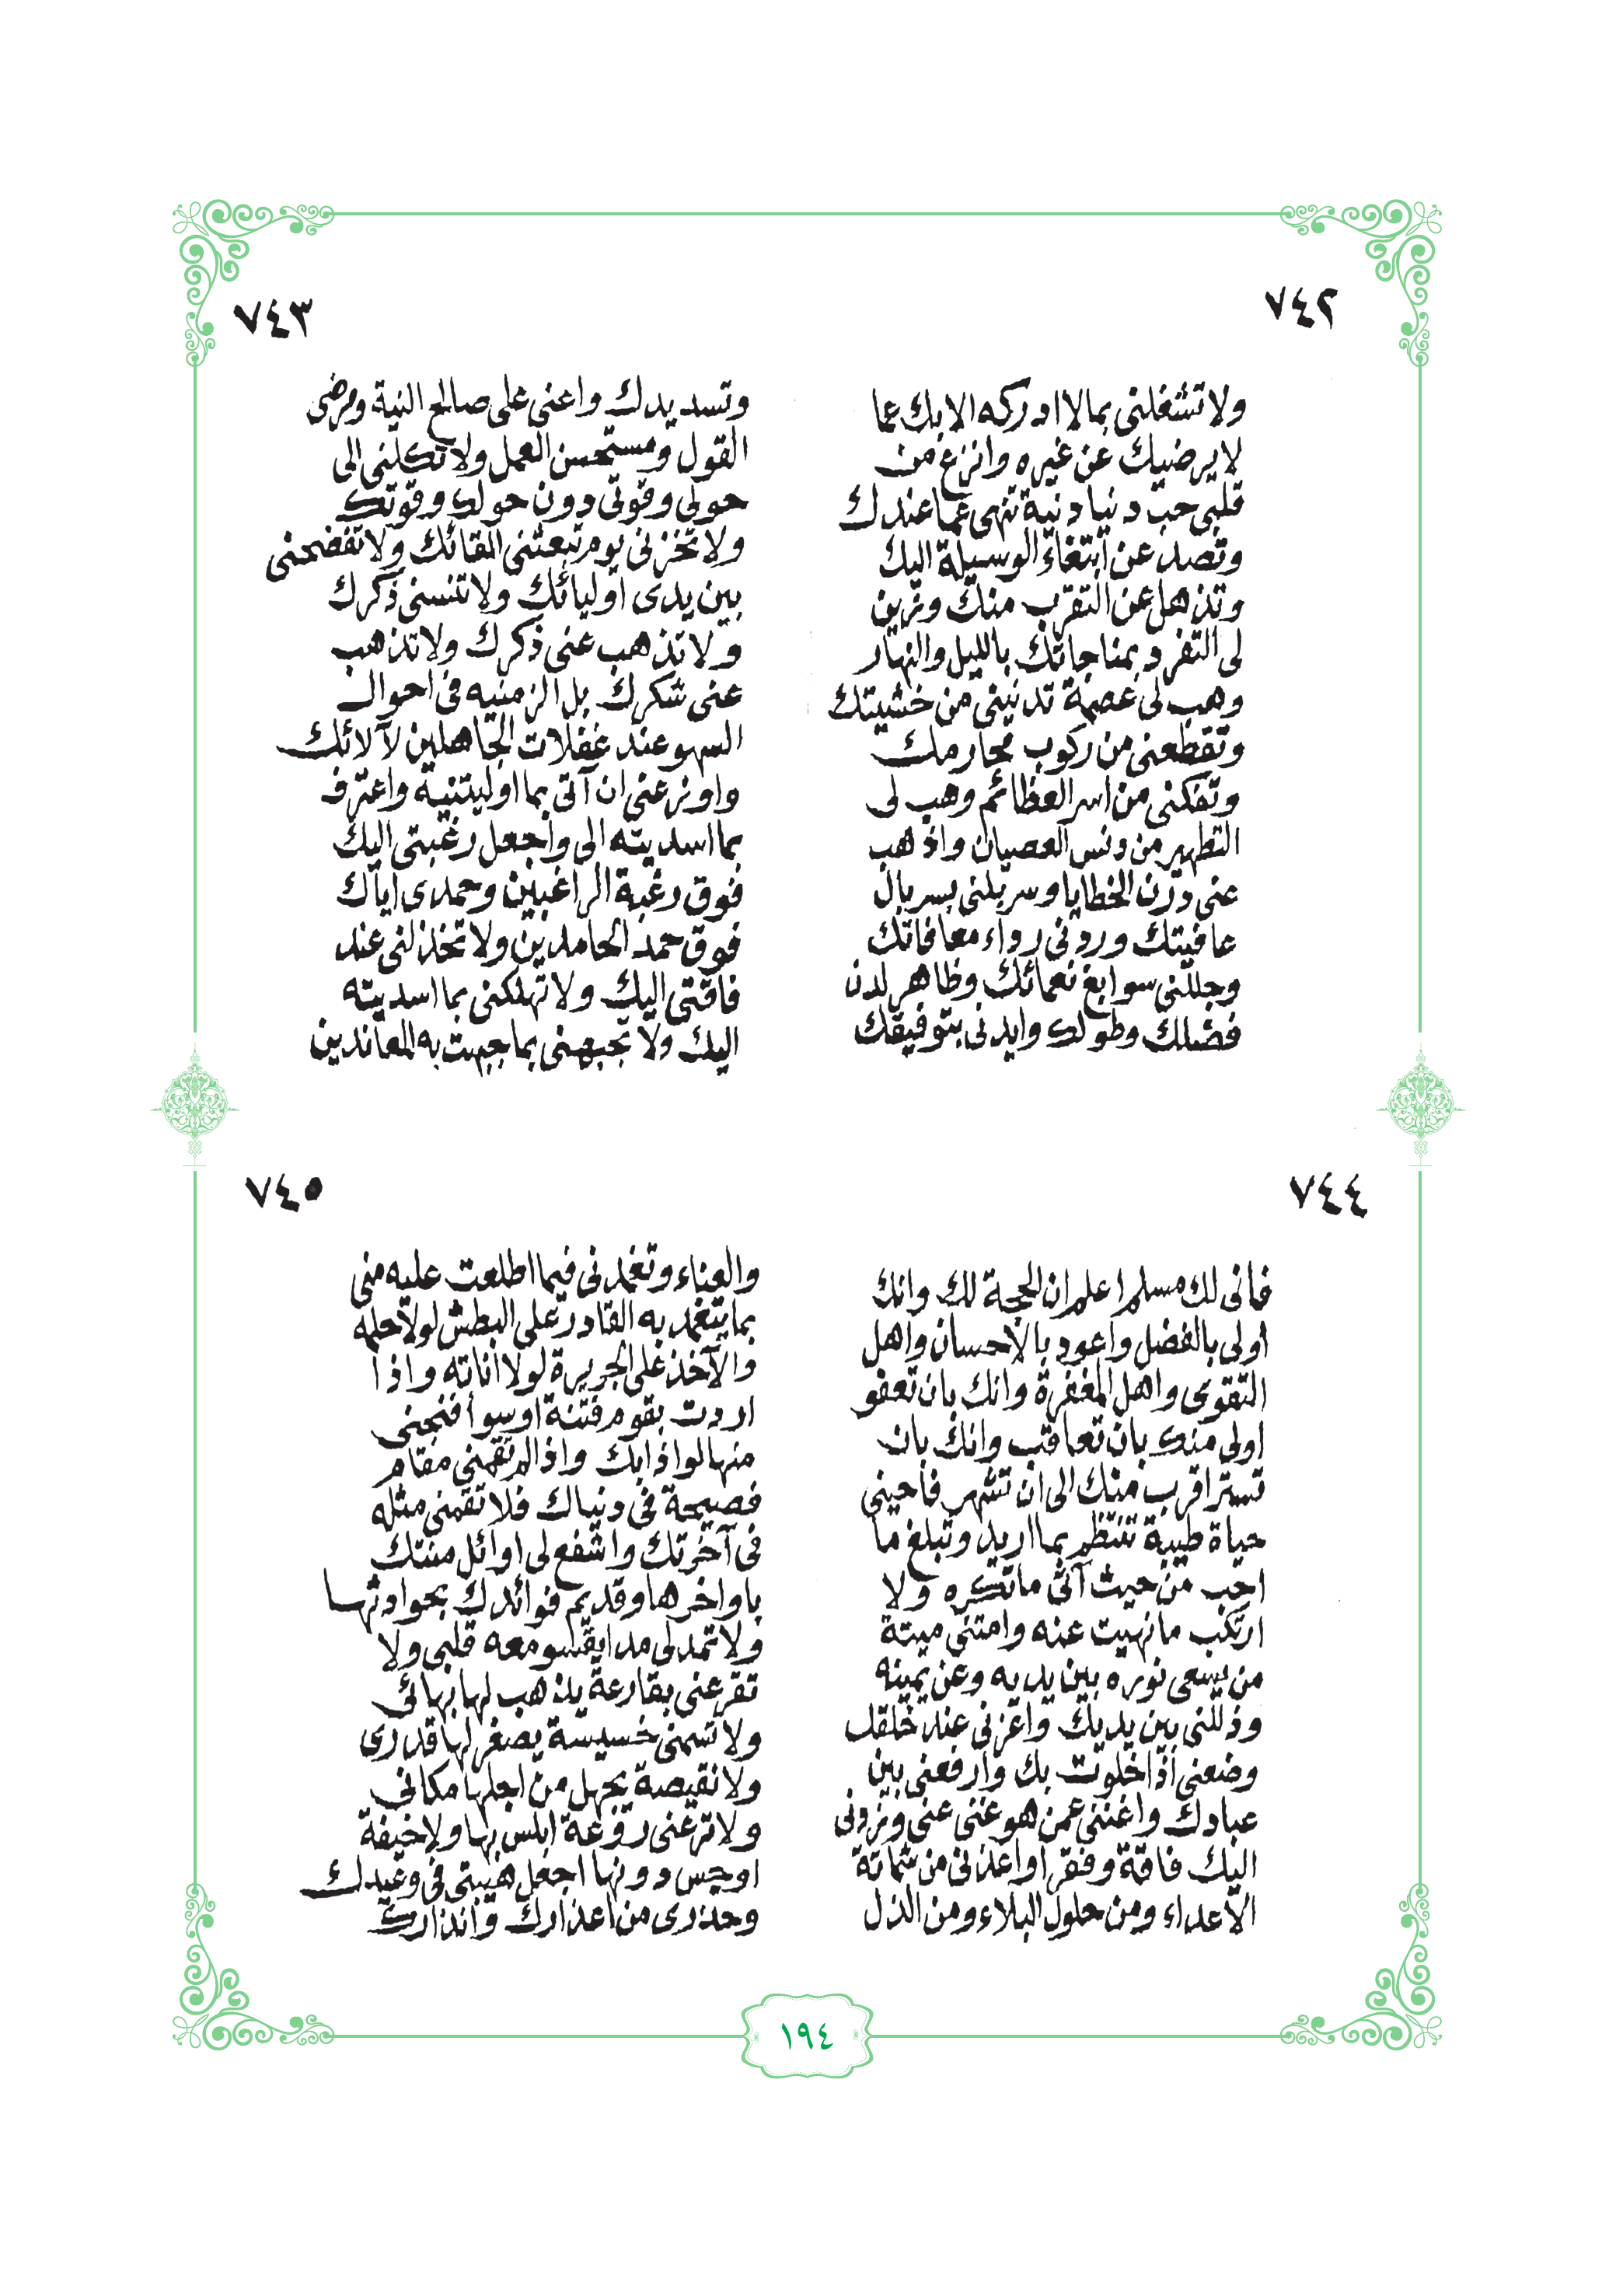 ٧٤٢
ولا تشغلنى بما لا ادركه الا بك عما
لا يرضيك عن غيره وانزع من
قلبى حب دنيا دنية تنهى عما عندك
وتصد عن ابتغاء الوسيلة اليك
وتذهل عن التقرب منك وزين
لى التفرد بمناجاتك بالليل والنهار
وهب لى عصمة تدنينى من خشيتك
وتقطعنى من ركوب محارمك
وتفكنى من اسر العظائم وهب لى
التطهير من دنس العصيان واذهب
عنى درن الخطايا وسربلنى بسربال
عافيتك وردنى رداء معافاتك
وجللنى سوابغ نعمائك وظاهر لدن
فضلك وطولك وايدنى بتوفيقك
٧٤٣
وتسديدك واعنى على صالح النية ومرضى
القول ومستحسن العمل ولا تكلنى الى
حولى وقوتى دون حولك وقوتك
ولا تخزنى يوم تبعثنى للقائك ولا تفضحنى
بين يدى اوليائك ولا تنسنى ذكرك
ولا تذهب عنى ذكرك ولا تذهب
عنى شكرك بل الزمنيه فى احوال
السهو عند غفلات الجاهلين لآلائك
واوزعنى ان آتى بما اوليتنية واعترف
بما اسديته الى واجعل رغبتى اليك
فوق رغبة الراغبين وحمدى اياك
فوق حمد الحامدين ولا تخذلنى عند
فاقتى اليك ولا تهلكنى بما اسديته
اليك ولا تجبهنى بما جبهت به المعاندين
٧٤٤
فانى لك مسلم اعلم ان الحجة لك وانك
اولى بالفضل واعود بالاحسان واهل
التقوى واهل المغفرة وانك بان تعفو
اولى منك بان تعاقب وانك بان
تستر اقرب منك الى ان تشهر فاحينى
حياة طيبة تنتظم بما اريد وتبلغ ما
احب من حيث آتى ما تكره ولا
ارتكب ما نهيت عنه وامتنى ميتة
من يسعى نوره بين يديه وعن يمينه
وذللنى بين يديك واعزنى عند خلقك
وضعنى اذا خلوت بك وارفعنى بين
عبادك واغننى عمن هو غنى عنى وزدنى
اليك فاقة وفقرا واعذنى من شماتة
الاعداء ومن حلول البلاء ومن الذل
٧٤٥
والعناء وتغمدنى فيما اطلعت عليه منى
بما يتغمد به القادر على البطش لولا حلمه
والآخذ على الجريرة لولا اناته واذا
اردت بقوم فتنة او سوأ فنجنى
منها لواذا بك واذا لم تقمنى مقام
فصيحة فى دنياك فلا تقمنى مثله
فى آخرتك واشفع لى اوائل مننك
باواخرها وقديم فوائدك بحوادثها
ولا تمدد لى مدا يقسو معه قلبى ولا
تقرعنى بقارعة يذهب لها بهائى
ولا تسمنى خسيسة يصغر لها قدرى
ولا نقيصة يجهل من اجلها مكانى
ولا ترعنى روعة ابلس بها ولا خيفة
اوجس دونها اجعل هيبتى فى وعيدك
وحذرى من اعذارك وانذارك
١٩٤